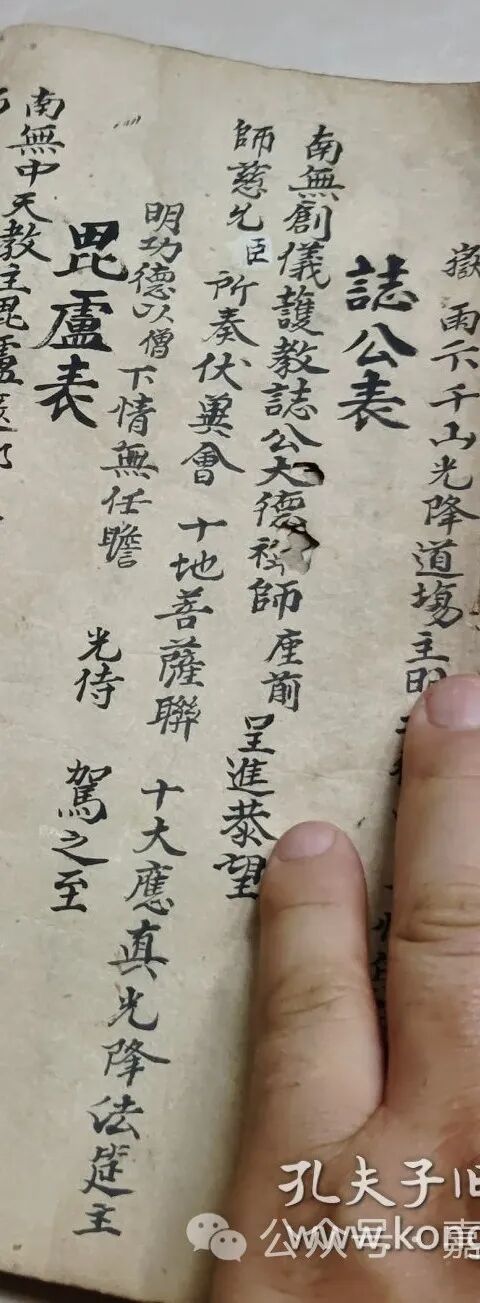 嶽雨六千山光降道塲主明
誌公表
南無創儀護教誌公大德禪師座前 呈進恭望
師慈允臣所奏伏兾會 十地菩薩聯 十大應真光降法筵主
明功德以僧下情無任瞻 光侍 駕之至
毘盧表
南無中天教主毘盧遮那
孔夫子旧
公众号·嘉
www.kong